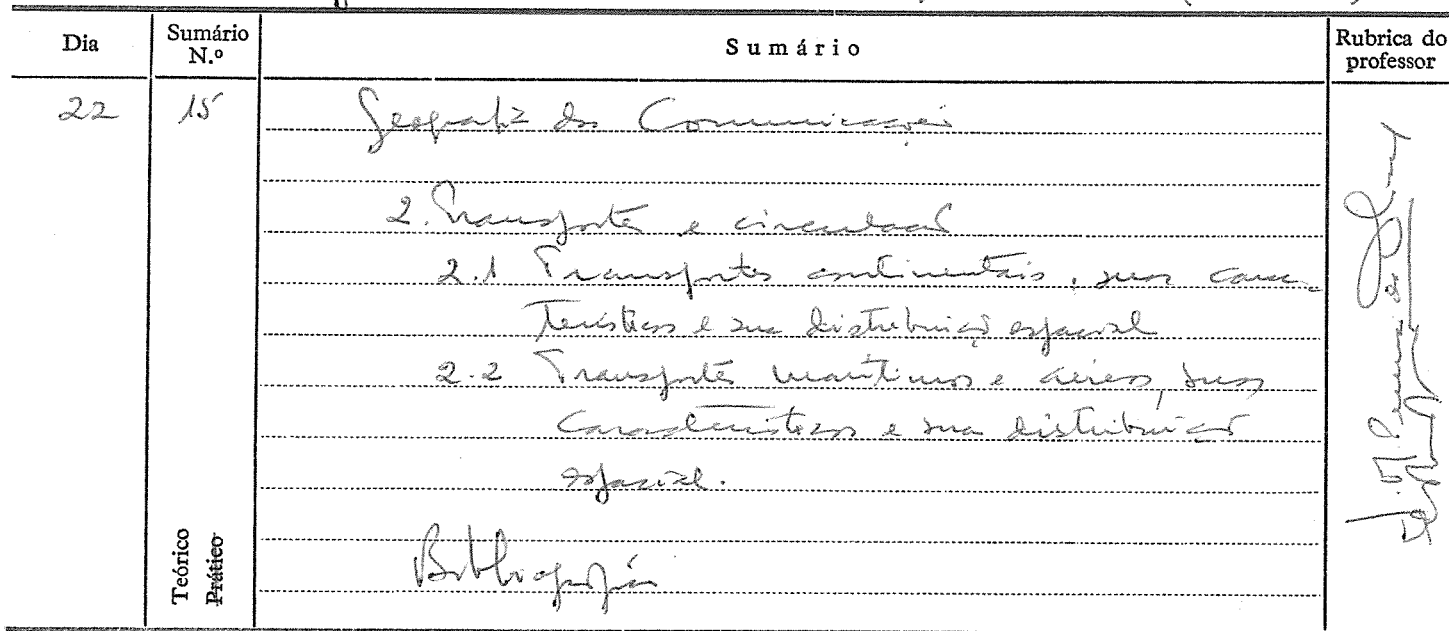 Dia
Sumário N.º
Sumário
Rubrica do professor
22
15
Geografia das Comunicações
2. Transportes e circulação
2.1 Transportes continentais, suas carac-
terísticas e sua distribuição espacial
2.2 Transportes marítimos e aéreos, suas
características e sua distribuição
espacial.
Bibliografia
Teórico
Prático